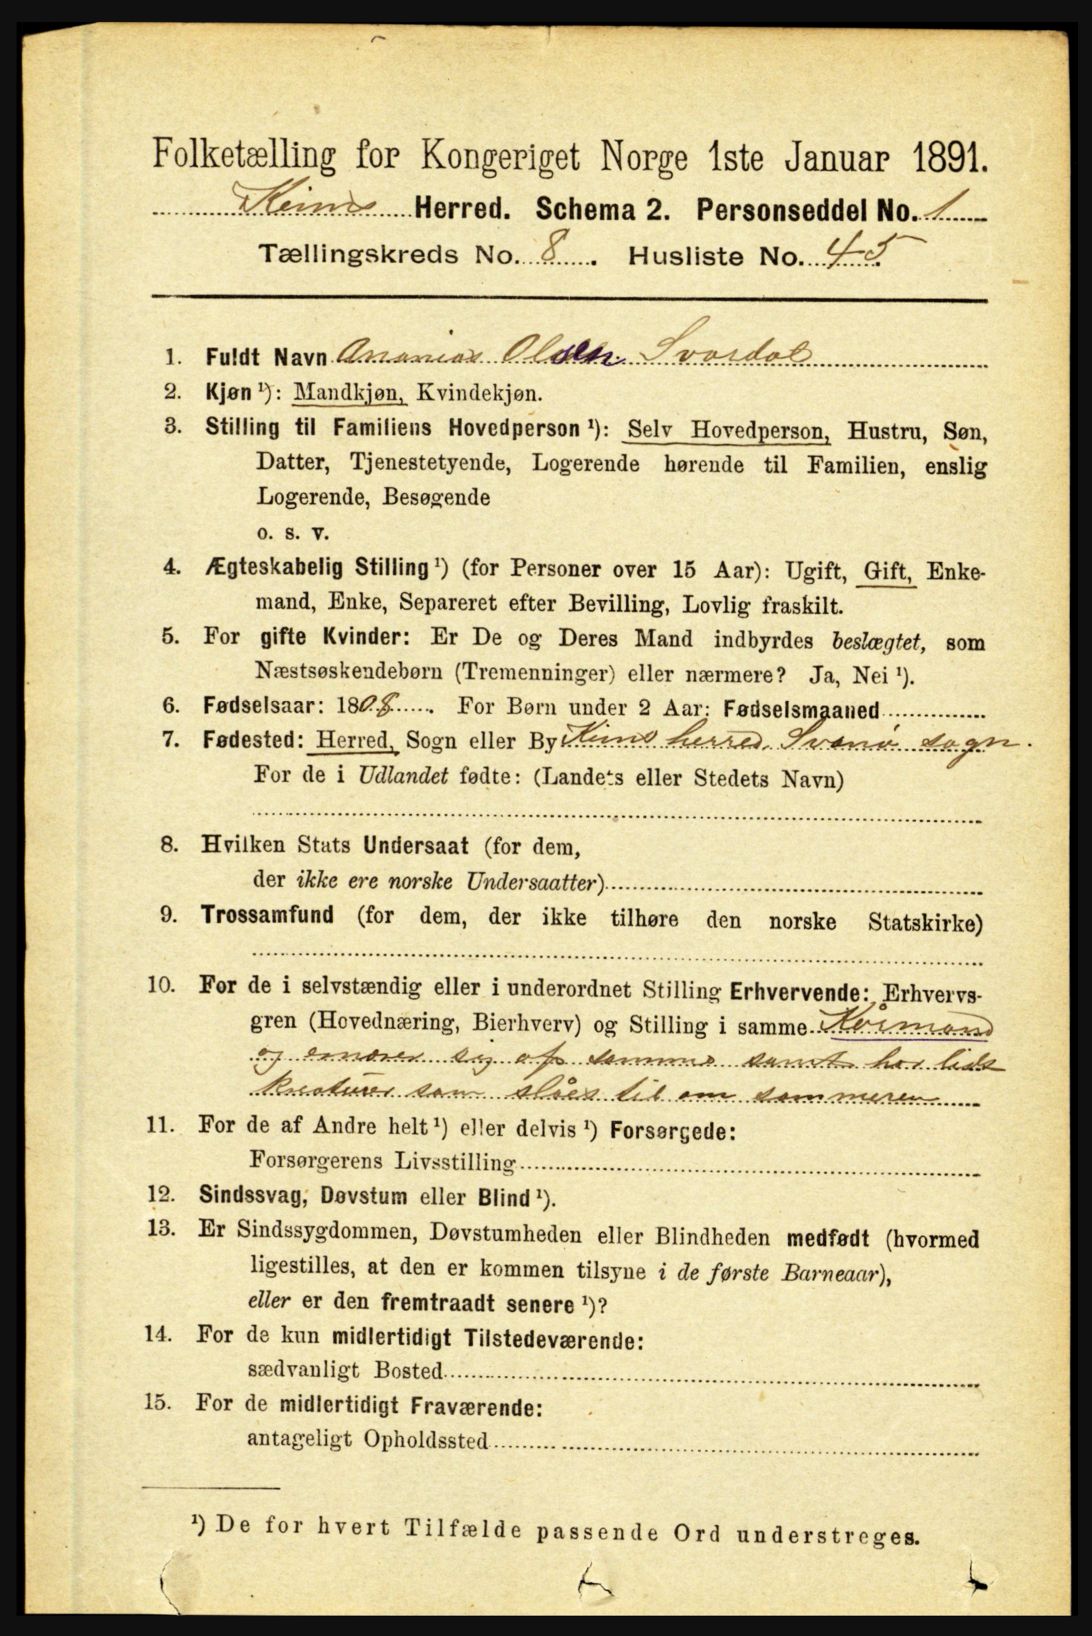 Folketælling for Kongeriget Norge 1ste Januar 1891.
Kinns Herred. Schema 2. Personseddel No. 1
Tællingskreds No. 8. Husliste No. 45
1. Fuldt Navn Ananias Olsen Svardal
2. Kjøn ¹): Mandkjøn, Kvindekjøn.
3. Stilling til Familiens Hovedperson ¹): Selv Hovedperson, Hustru, Søn,
Datter, Tjenestetyende, Logerende hørende til Familien, enslig
Logerende, Besøgende
o. s. v.
4. Ægteskabelig Stilling ¹) (for Personer over 15 Aar): Ugift, Gift, Enke-
mand, Enke, Separeret efter Bevilling, Lovlig fraskilt.
5. For gifte Kvinder: Er De og Deres Mand indbyrdes beslægtet, som
Næstsøskendebørn (Tremenninger) eller nærmere? Ja, Nei ¹).
6. Fødselsaar: 1808. For Børn under 2 Aar: Fødselsmaaned
7. Fødested: Herred, Sogn eller By Kinns herred, Svanø sogn.
For de i Udlandet fødte: (Landets eller Stedets Navn)
8. Hvilken Stats Undersaat (for dem,
der ikke ere norske Undersaatter)
9. Trossamfund (for dem, der ikke tilhøre den norske Statskirke)
10. For de i selvstændig eller i underordnet Stilling Erhvervende: Erhvervs-
gren (Hovednæring, Bierhverv) og Stilling i samme Kårmand
og ernærer sig af samme samt har lidt
kreaturer som slåes til om sommeren
11. For de af Andre helt ¹) eller delvis ¹) Forsørgede:
Forsørgerens Livsstilling
12. Sindssvag, Døvstum eller Blind ¹).
13. Er Sindssygdommen, Døvstumheden eller Blindheden medfødt (hvormed
ligestilles, at den er kommen tilsyne i de første Barneaar),
eller er den fremtraadt senere ¹)?
14. For de kun midlertidigt Tilstedeværende:
sædvanligt Bosted
15. For de midlertidigt Fraværende:
antageligt Opholdssted
¹) De for hvert Tilfælde passende Ord understreges.